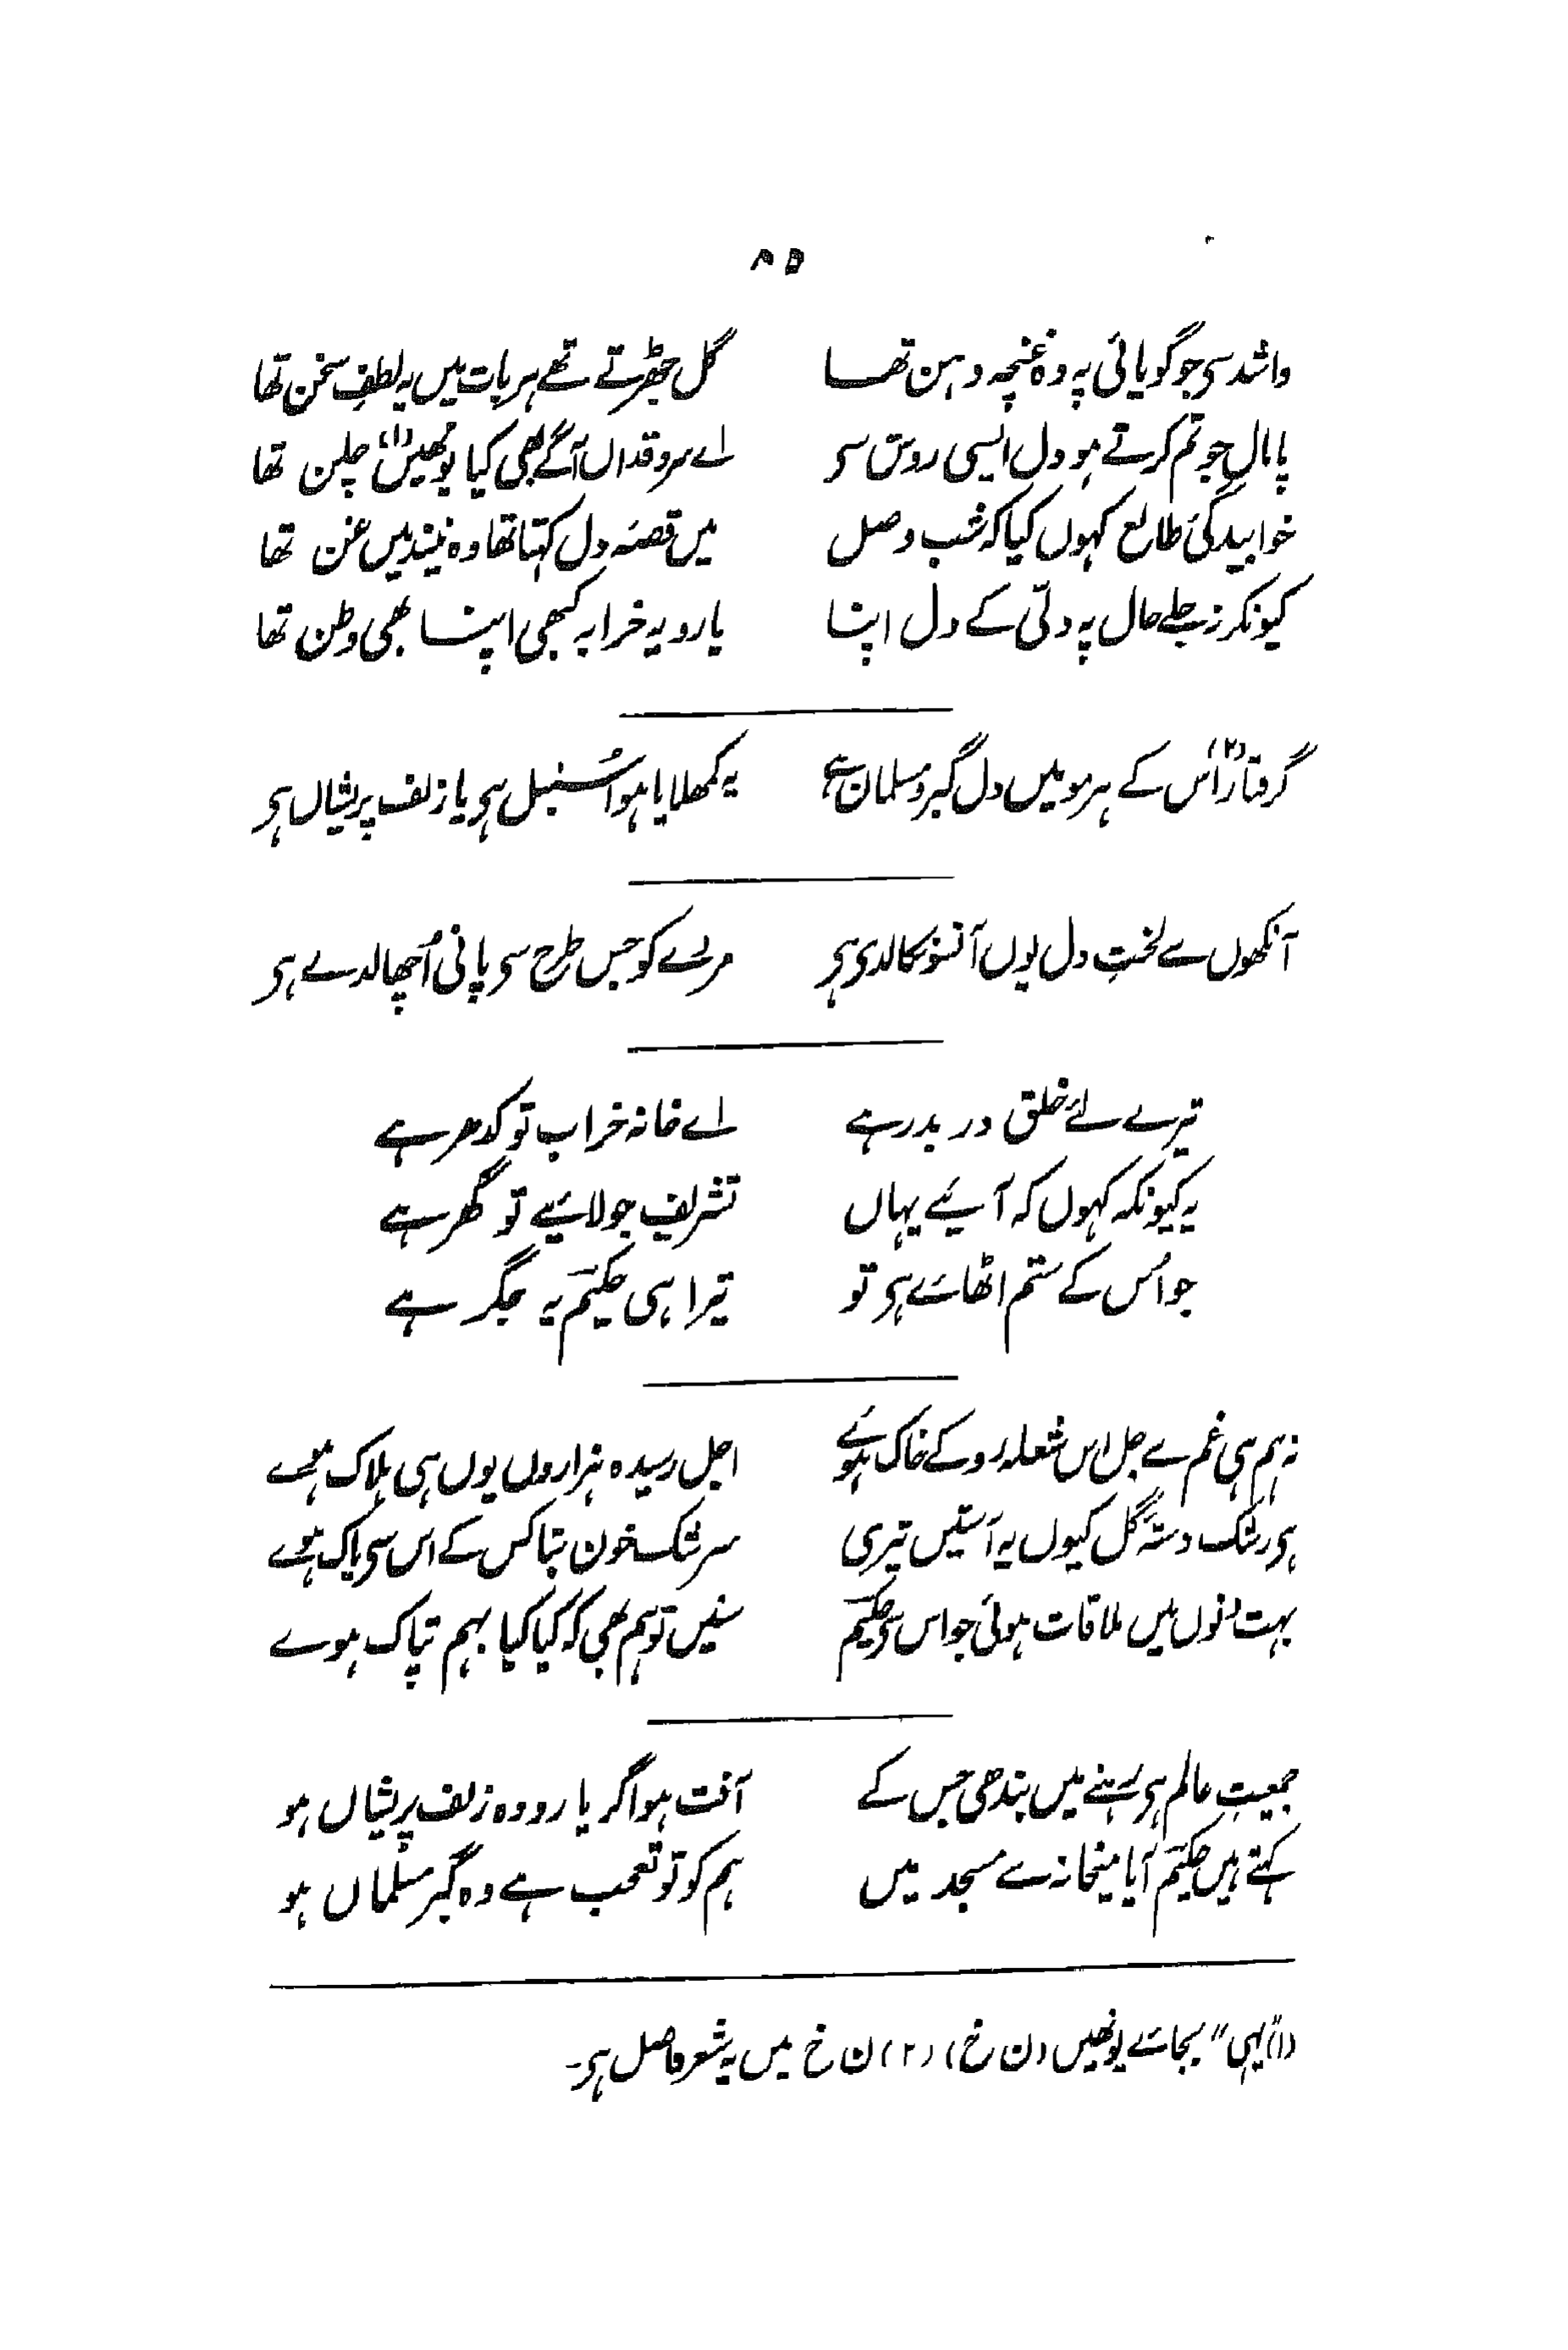 ۸۵
واشد سی جو گویائی پہ وہ غنچہ دہن تھا گل جھڑتے تھے ہر بات میں یہ لطفِ سخن تھا
پامال جو تم کرتے ہو دل ایسی روش سی اے سروقداں آگے بھی کیا یونھیں(۱) چلن تھا
خوابیدگئ طالع کہوں کیا کہ شب وصل میں قصۂ دل کہتا تھا وہ نیند میں غن تھا
کیونکر نہ جلے حال پہ دلّی کے دل اپنا یارو یہ خرابہ کبھی اپنا بھی وطن تھا
گرفتار(۲) اُس کے ہر مو میں دل گبر و مسلمان ہے یہ کمھلایا ہوا سُنبل ہی یا زلف پریشاں ہی
آنکھوں سے لختِ دل یوں آنسو نکالدی ہی مردے کو جس طرح سی پانی اُچھالدے ہی
تیرے لئے خلق در بدر ہے اے خانہ خراب تو کدھر ہے
یہ کیونکہ کہوں کہ آئیے یہاں تشریف جو لائیے تو گھر ہے
جو اُس کے ستم اٹھائے ہی تو تیرا ہی حکیم یہ جگر ہے
نہ ہم ہی غم سے جل اس شعلہ رو کے خاک ہوئے اجل رسیدہ ہزاروں یوں ہی ہلاک ہوے
ہی رشک دستۂ گل کیوں یہ آستیں تیری سرشک خون بتا کس کے اس سی پاک ہوے
بہت دنوں میں ملاقات ہوئی جو اس سی حکیم سنیں تو ہم بھی کہ کیا کیا بہم تپاک ہوے
جمعیتِ عالم ہی رہنے میں بندھی جس کے آفت ہو اگر یارو وہ زلف پریشاں ہو
کہتے ہیں حکیم آیا میخانہ سے مسجد میں ہم کو تو تعجب ہے وہ گبر مسلماں ہو
(۱) "یہی" بجائے یونھیں (ن خ) (۲) ن خ میں یہ شعر فاصل ہی۔